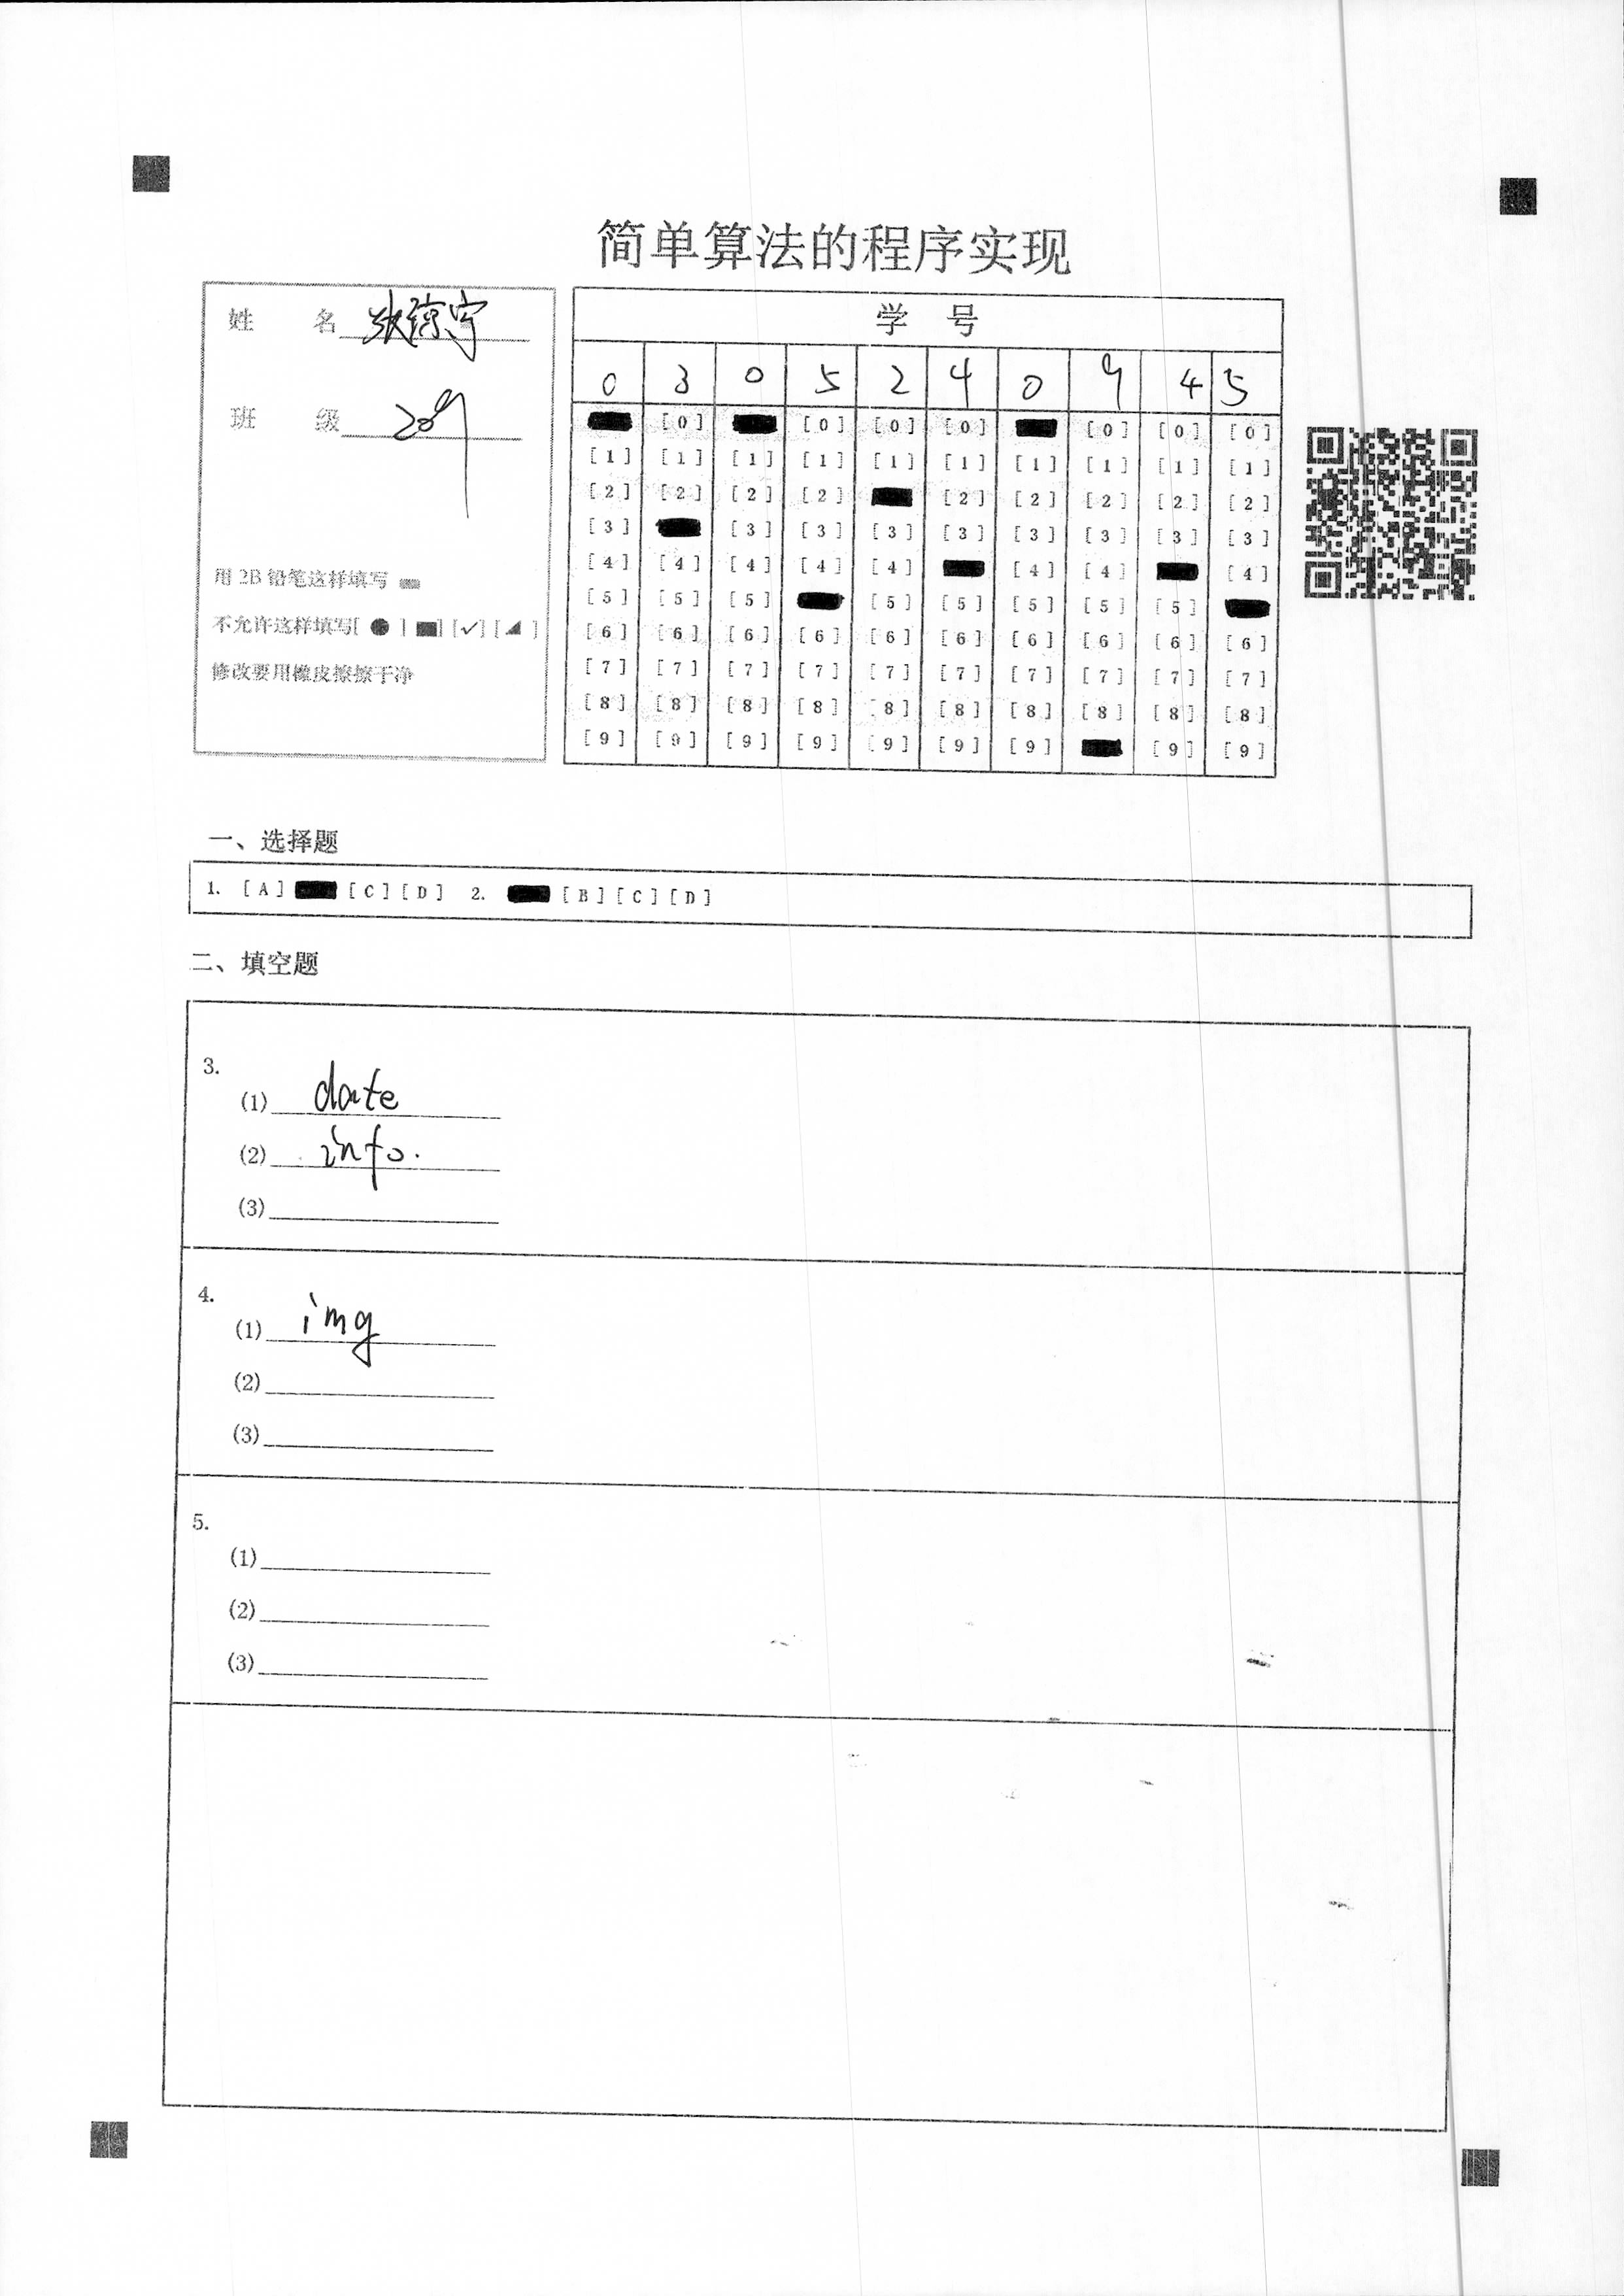 简单算法的程序实现
姓 名
班 级 209
用 2B 铅笔这样填写
不允许这样填写[ ● ] [■] [✓] [◢ ]
修改要用橡皮擦擦干净
学 号
0 3 0 5 2 4 0 9 4 5
[0] [0] [0] [0] [0] [0] [0]
[1] [1] [1] [1] [1] [1] [1] [1] [1] [1]
[2] [2] [2] [2] [2] [2] [2] [2] [2]
[3] [3] [3] [3] [3] [3] [3] [3] [3]
[4] [4] [4] [4] [4] [4] [4] [4]
[5] [5] [5] [5] [5] [5] [5] [5]
[6] [6] [6] [6] [6] [6] [6] [6] [6] [6]
[7] [7] [7] [7] [7] [7] [7] [7] [7] [7]
[8] [8] [8] [8] [8] [8] [8] [8] [8] [8]
[9] [9] [9] [9] [9] [9] [9] [9] [9]
一、选择题
1. [A] [C] [D] 2. [B] [C] [D]
二、填空题
3.
(1) date
(2) info.
(3)
4.
(1) img
(2)
(3)
5.
(1)
(2)
(3)